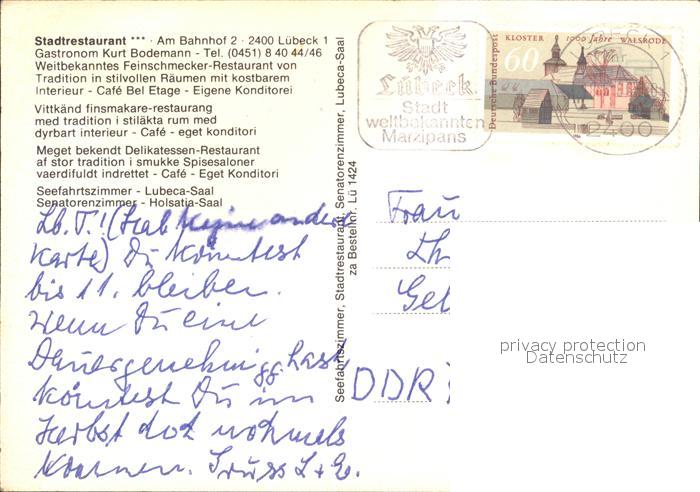 Stadtrestaurant *** · Am Bahnhof 2 · 2400 Lübeck 1
Gastronom Kurt Bodemann - Tel. (0451) 8 40 44/46
Weitbekanntes Feinschmecker-Restaurant von
Tradition in stilvollen Räumen mit kostbarem
Interieur - Café Bel Etage - Eigene Konditorei
Vittkänd finsmakare-restaurang
med tradition i stiläkta rum med
dyrbart interieur - Café - eget konditori
Meget bekendt Delikatessen-Restaurant
af stor tradition i smukke Spisesaloner
vaerdifuldt indrettet - Café - Eget Konditori
Seefahrtszimmer - Lubeca-Saal
Senatorenzimmer - Holsatia-Saal
Lb. T.! (Hab keine andere
Karte) Du könntest
bis 11. bleiben.
Wenn Du eine
Dauergenehmigg. hast,
könntest Du im
Herbst doch nochmals
kommen. Gruss L + E.
Seefahrtszimmer, Stadtrestaurant, Senatorenzimmer, Lubeca-Saal
za Bestellnr. Lü 1424
Lübeck
Stadt
weltbekannten
Marzipans
KLOSTER 1000 Jahre WALSRODE
60
Deutsche Bundespost
2400
Frau
Th
Ge
DDR
privacy protection
Datenschutz